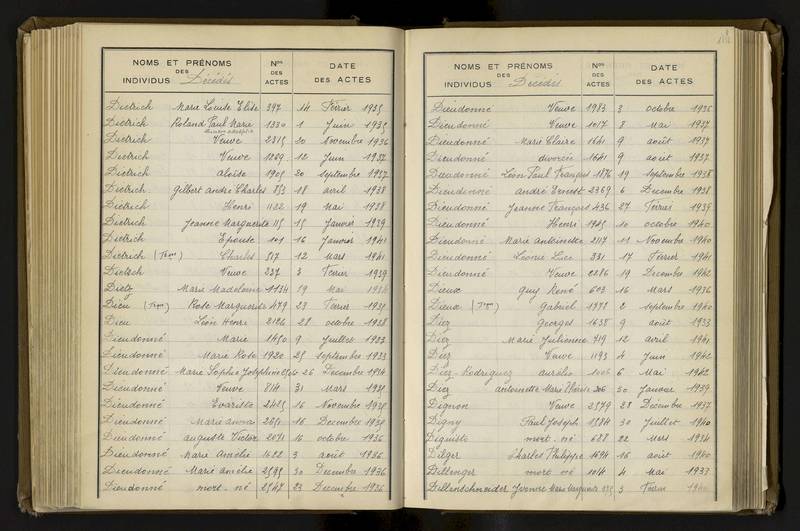 NOMS ET PRÉNOMS
DES
INDIVIDUS Décédés
Nos
DES
ACTES
DATE
DES ACTES
Dietrich Marie Louise Elise 397 14 Février 1935
Dietrich Roland Paul Marie 1330 1 Juin 1935
Dietrich Veuve 2315 20 Novembre 1936
Dietrich Veuve 1289 12 Juin 1937
Dietrich 1905 20 septembre 1937
Dietrich Gilbert André Charles 853 18 avril 1938
Dietrich Henri 1122 19 Mai 1938
Dietrich Jeanne Marguerite 115 15 Janvier 1939
Dietrich Epouse 101 16 Janvier 1941
Dietrich Charles 517 12 Mars 1941
Dietsch Veuve 337 3 Février 1939
Dietz Marie Madeleine 1134 19 Mai
Dieu Rose Marguerite 479 23 Février 1935
Dieu Léon Henri 2126 28 octobre 1938
Dieudonné Marie 1450 9 Juillet 1933
Dieudonné Marie Rose 1920 25 septembre 1933
Dieudonné Marie Sophie Joséphine 26 Décembre 1934
Dieudonné Veuve 814 31 Mars 1935
Dieudonné Evariste 2425 16 Novembre 1935
Dieudonné Marie 2651 16 Décembre 1935
Dieudonné auguste Victor 2071 16 octobre 1936
Dieudonné Marie Amélie 1622 3 août 1936
Dieudonné Marie Amélie 2595 30 Décembre 1936
Dieudonné mort-né 2547 23 Décembre 1936
NOMS ET PRÉNOMS
DES
INDIVIDUS Décédés
Nos
DES
ACTES
DATE
DES ACTES
Dieudonné Veuve 1983 3 octobre 1936
Dieudonné Veuve 1017 8 Mai 1937
Dieudonné Marie Claire 1641 9 août 1937
Dieudonné divorcée 1641 9 août 1937
Dieudonné Léon Paul François 1876 19 septembre 1938
Dieudonné andré Ernest 2369 6 Décembre 1938
Dieudonné Jeanne Françoise 436 27 Février 1939
Dieudonné Henri 1945 10 octobre 1940
Dieudonné Marie Antoinette 2117 11 Novembre 1940
Dieudonné Léonie 331 17 Février 1941
Dieudonné Veuve 2286 19 Décembre 1942
Dieux Guy René 603 16 Mars 1936
Dieux Gabriel 1778 2 septembre 1940
Diez Georges 1635 9 août 1933
Diez Marie Julienne 719 12 avril 1941
Diez Veuve 1193 4 Juin 1942
Diez-Rodriguez aurélio 1006 6 Mai 1942
Diez antoinette Marie 206 20 Janvier 1939
Dignon Veuve 2579 28 Décembre 1937
Digny Paul Joseph 1524 30 Juillet 1940
Diguiste mort-né 628 22 Mars 1934
Dilger Charles Philippe 1694 16 août 1940
Dillenger mort né 1044 4 Mai 1937
Dillentschneider Yvonne 3 Février 1940